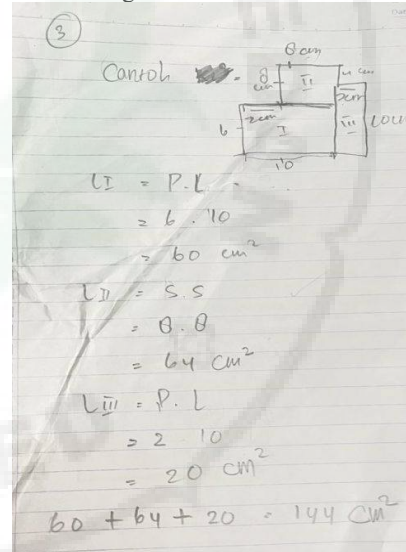 3
8 cm
Contoh
8 cm
II
4 cm
2cm
2cm
6
I
III
10
LI = P.L
= 6 . 10
= 60 cm²
LII = S.S
= 8.8
= 64 cm²
LIII = P.L
= 2 10
= 20 cm²
60 + 64 + 20 = 144 cm²